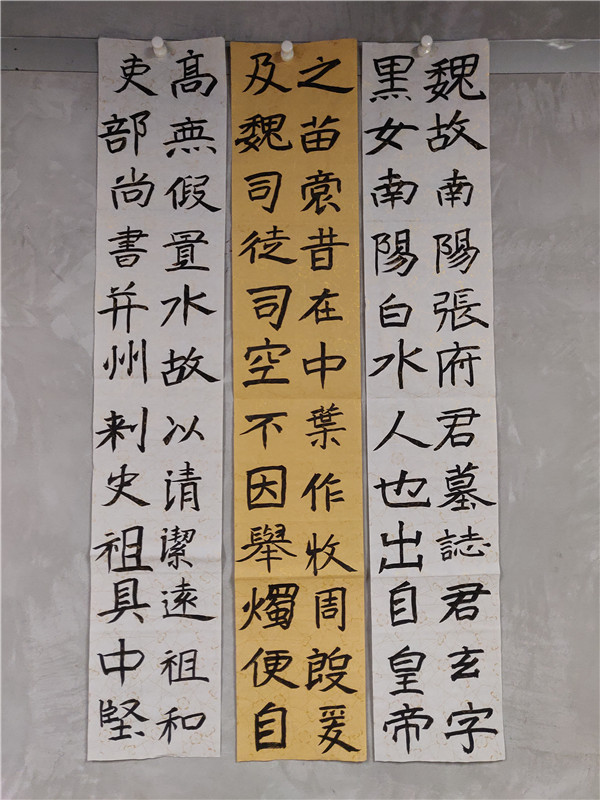 魏故南陽張府君墓誌君玄字
黑女南陽白水人也出自皇帝
之苗裔昔在中葉作牧周殷爰
及魏司徒司空不因舉燭便自
高無假置水故以清潔遠祖和
吏部尚書并州刺史祖具中堅